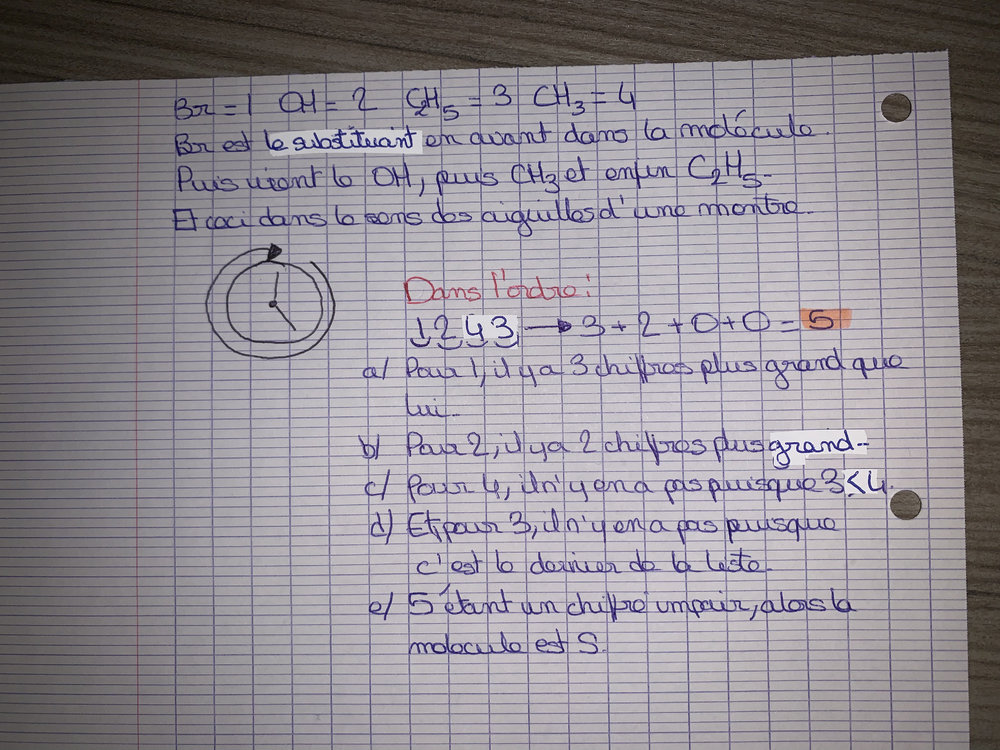 Br = 1 OH = 2 C2H5 = 3 CH3 = 4
Br est le substituant en avant dans la molécule.
Puis vient le OH, puis CH3 et enfin C2H5.
Et ceci dans le sens des aiguilles d'une montre.
Dans l'ordre :
1 2 4 3 → 3 + 2 + 0 + 0 = 5
a/ Pour 1, il y a 3 chiffres plus grand que
lui.
b/ Pour 2, il y a 2 chiffres plus grand..
c/ Pour 4, il n'y en a pas puisque 3 ≤ 4.
d) Et pour 3, il n'y en a pas puisque
c'est le dernier de la liste.
e/ 5 étant un chiffre impair, alors la
molecule est S.